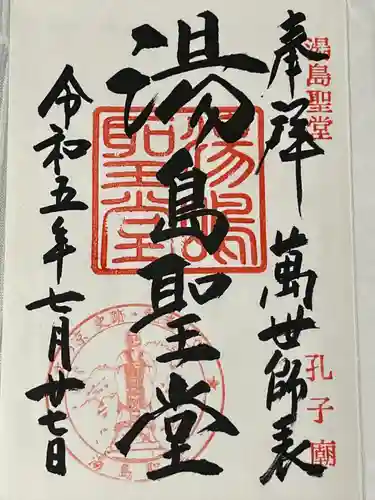 湯島聖堂
奉拝
萬世師表
孔子廟
湯島聖堂
湯島聖堂
令和五年七月廿七日